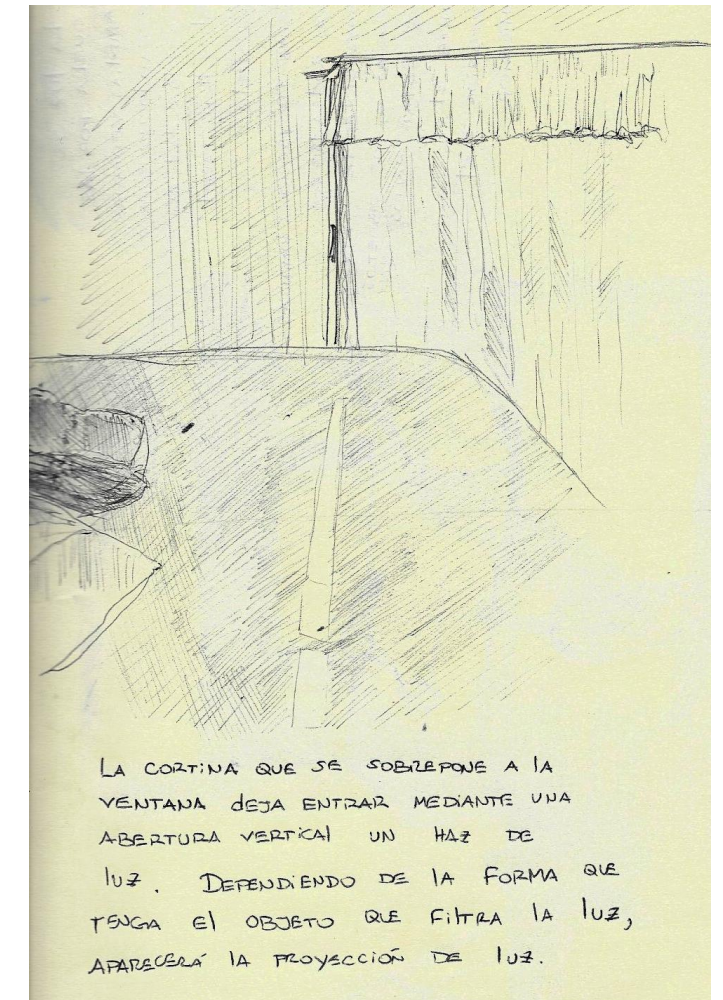 LA CORTINA QUE SE SOBREPONE A lA
VENTANA dEJA ENTRAR MEDiANTE UNA
ABERTURA VERTiCAl UN HAZ DE
lUZ. DEPENDiENDO DE lA FORMA QUE
TENGA El OBJETO QUE FilTRA lA lUZ,
APARECERÁ lA PROYECCIÓN DE lUZ.